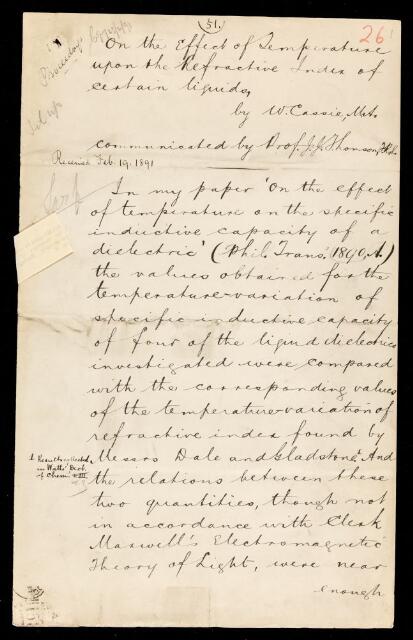 (51.)
26
On the Effect of Temperature
upon the Refractive Index of
certain liquids,
by W. Cassie, M.A.
communicated by Prof. J. J. Thomson, F.R.S.
Received Feb. 19. 1891
In my paper 'On the effect
of temperature on the specific
inductive capacity of a
dielectric' (Phil. Trans. 1890, A)
the values obtained for the
temperature-variation of
specific inductive capacity
of four of the liquid dielectrics
investigated were compared
with the corresponding values
of the temperature-variation of
refractive index found by
Messrs Dale and Gladstone.¹ And
the relations between these
two quantities, though not
in accordance with Clerk
Maxwell's Electromagnetic
Theory of Light, were near
enough
1 Results collected
in Watts' Dict.
of Chem. III